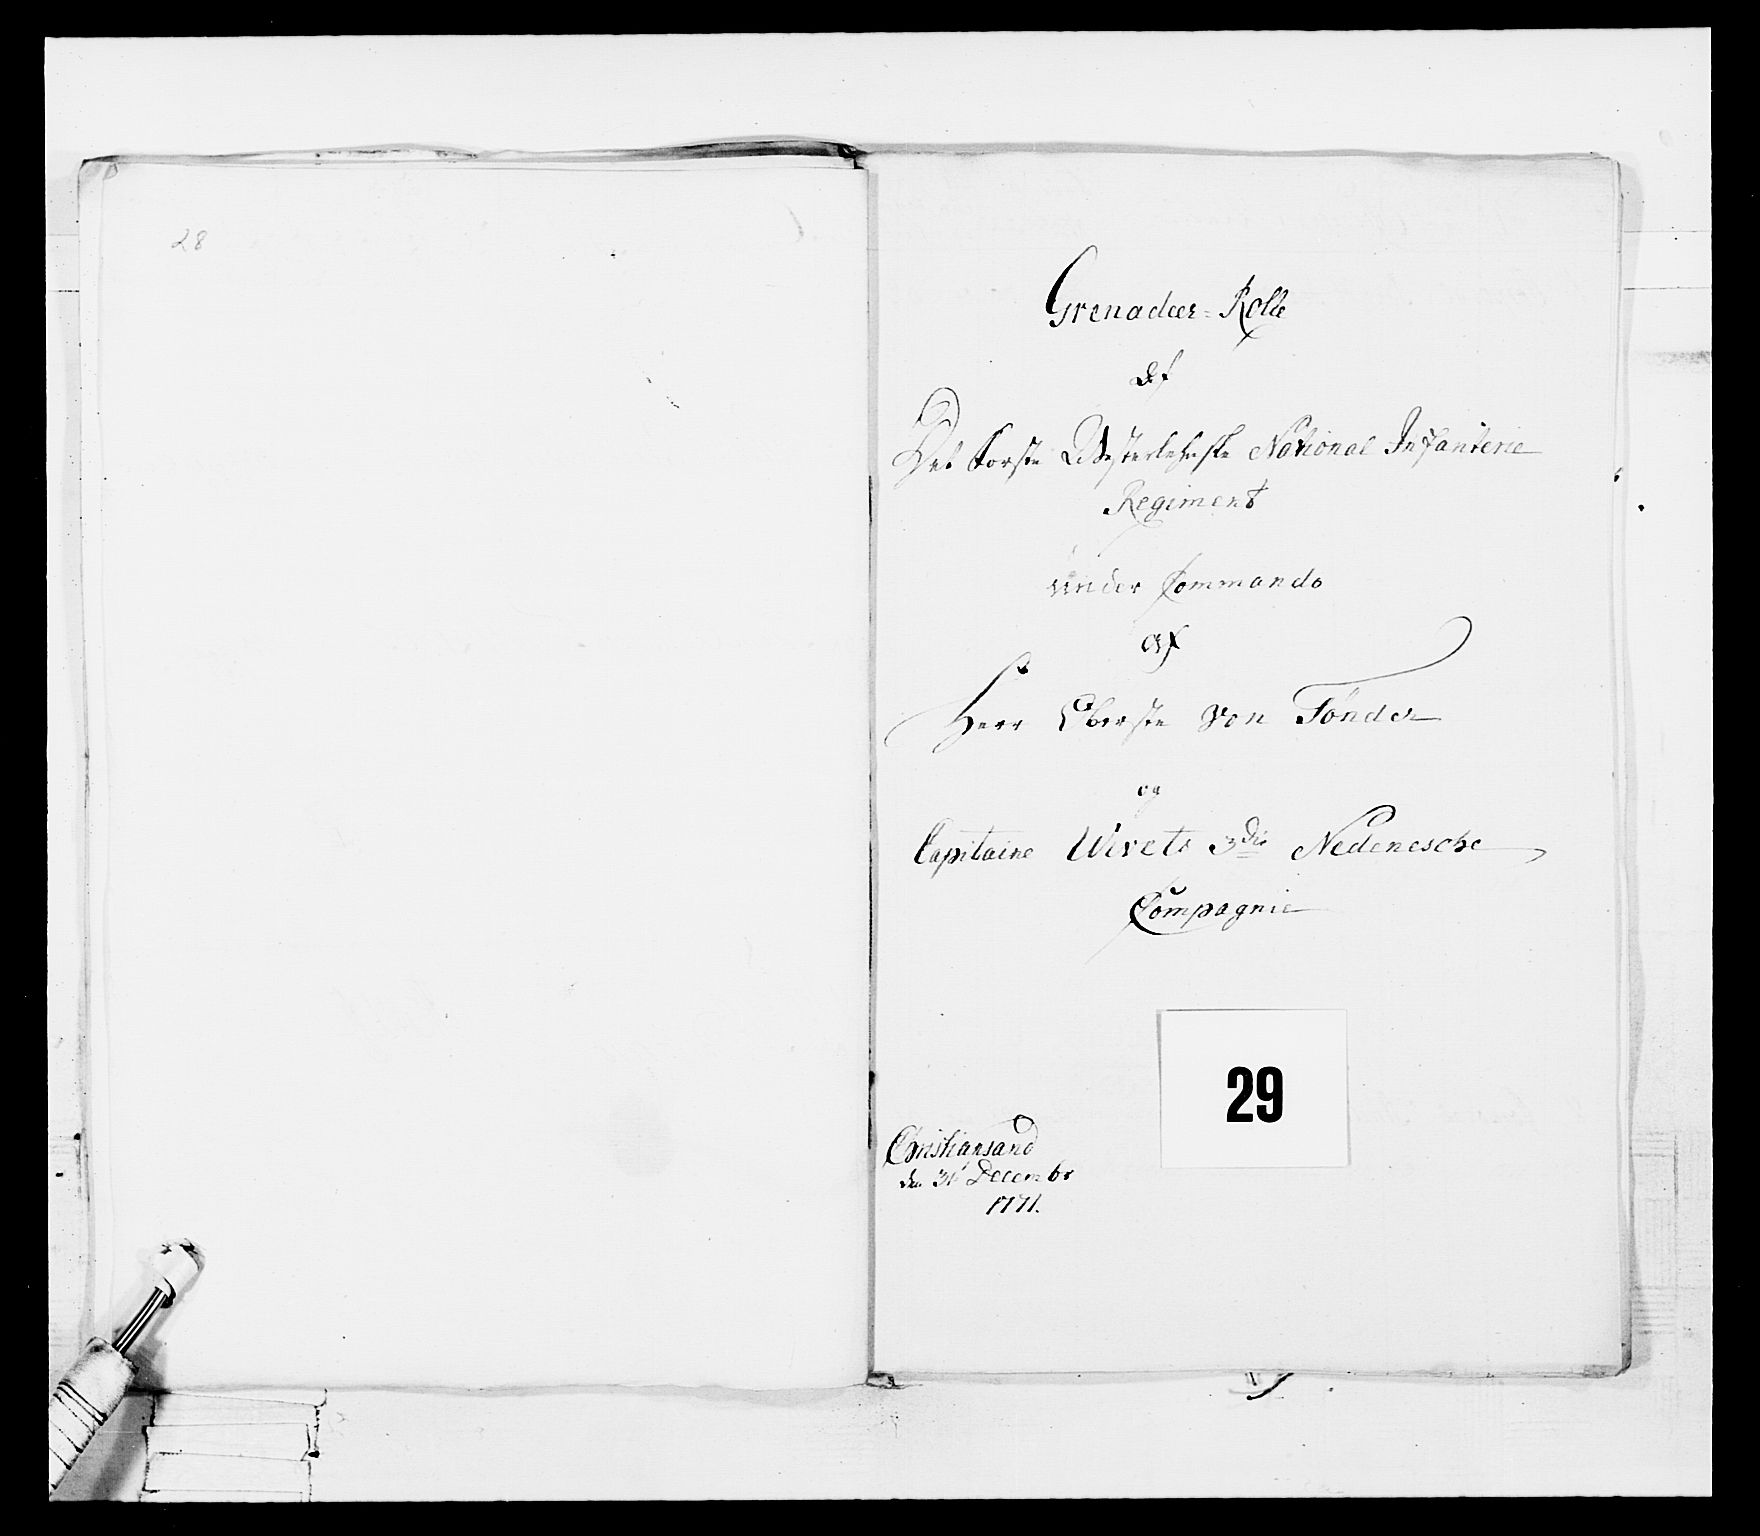 28
Grenadeer-Rolle
Af
Det Forste Westerlehnske National Infanterie
Regiment
under Commando
af
Herr Oberste von Tönder
og
Capitaine Wirets 3die Nedenesche
Compagnie
29
Christiansand
den 31 Decembr
1771.